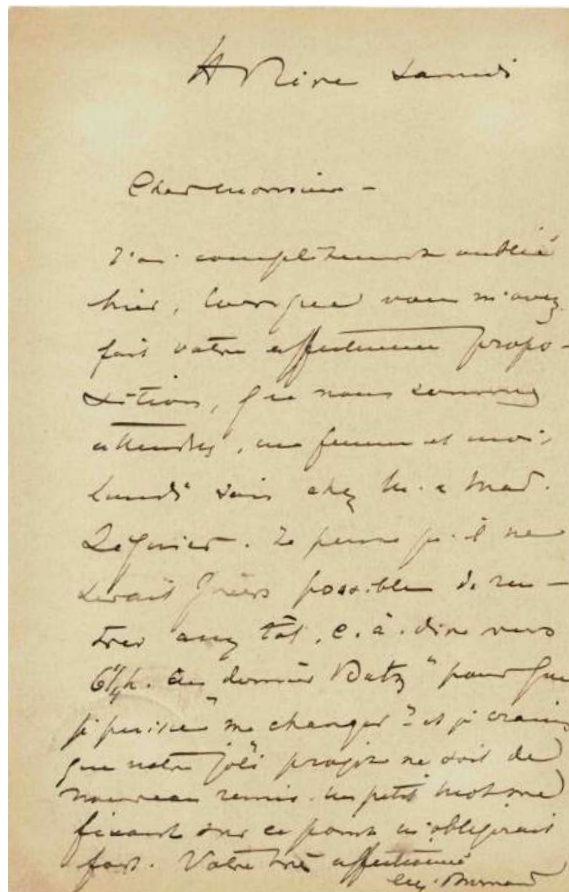 Samedi
Cher Monsieur -
J'ai complètement oublié
hier, lorsque vous m'avez
fait votre affectueuse propo-
sition, que nous sommes
attendus, ma femme et moi,
Lundi soir chez M. & Mad.
Je pense qu'il ne
serait guère possible de ren-
trer assez tôt, c. à. dire vers
6¼h. du dernier pour que
je puisse "me changer" et je crains
que notre joli projet ne soit de
nouveau remis. Un petit mot me
fixant sur ce point m'obligerait
fort. Votre très affectionné
Eug. Burnand